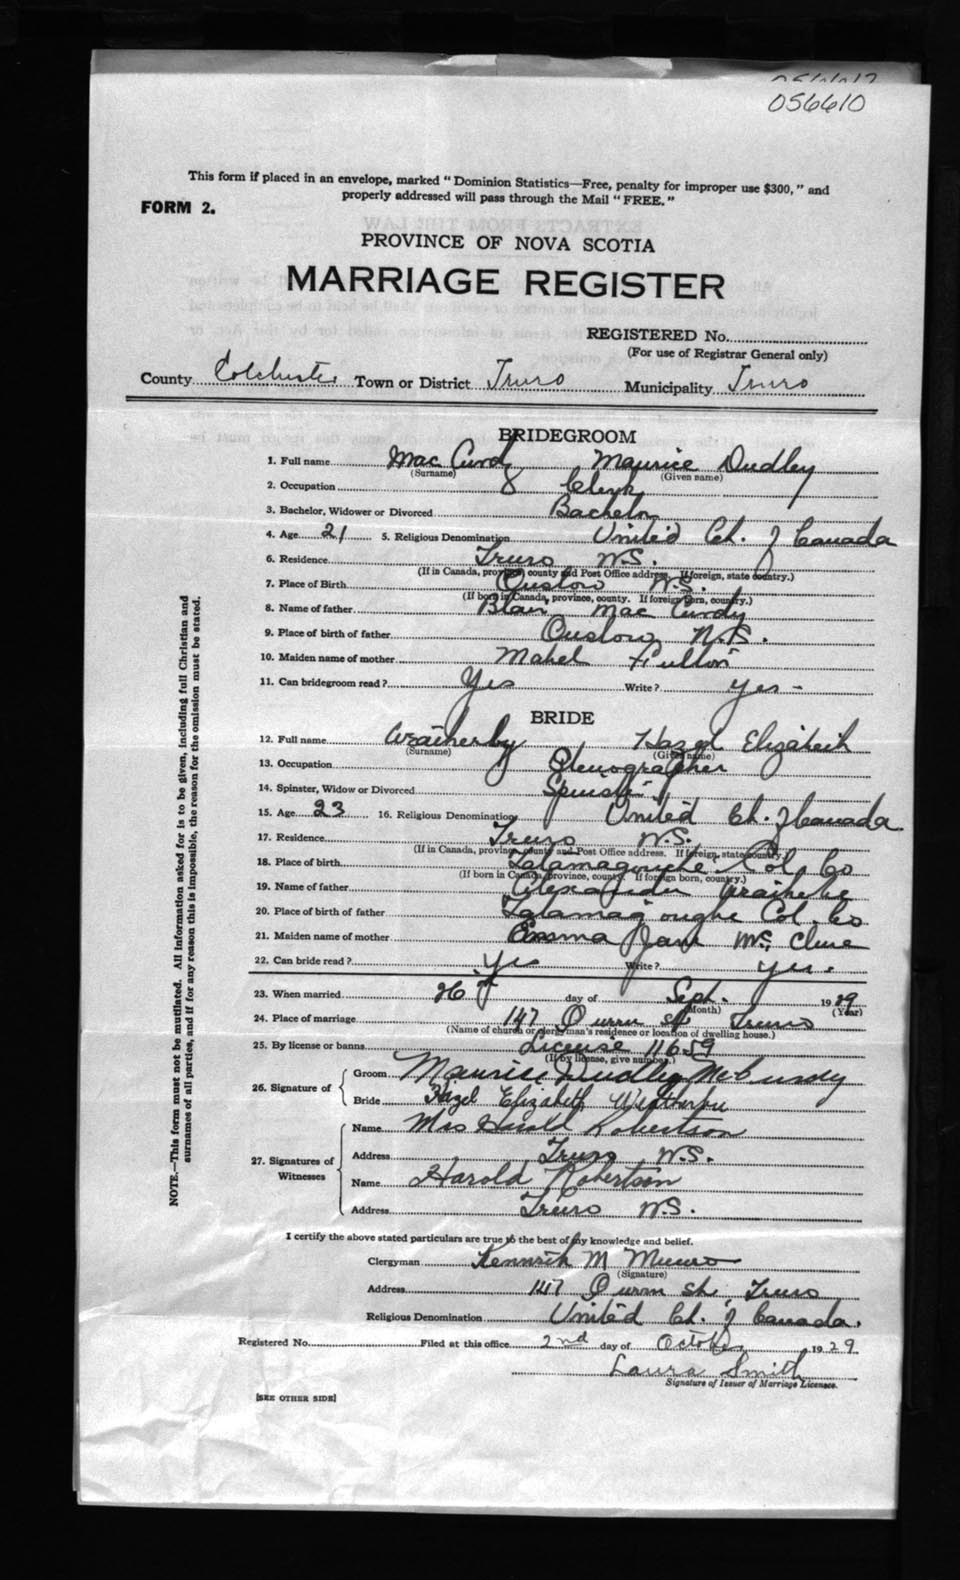 056610
This form if placed in an envelope, marked "Dominion Statistics—Free, penalty for improper use $300," and
properly addressed will pass through the Mail "FREE."
FORM 2.
PROVINCE OF NOVA SCOTIA
MARRIAGE REGISTER
REGISTERED No.
(For use of Registrar General only)
County Colchester Town or District Truro Municipality Truro
BRIDEGROOM
1. Full name Mac Curdy Maurice Dudley
(Surname) (Given name)
2. Occupation Clerk
3. Bachelor, Widower or Divorced Bachelor
4. Age 21 5. Religious Denomination United Ch. of Canada
6. Residence Truro N.S.
(If in Canada, province, county and Post Office address. If foreign, state country.)
7. Place of Birth Onslow N.S.
(If born in Canada, province, county. If foreign born, country.)
8. Name of father Blair Mac Curdy
9. Place of birth of father Onslow N.S.
10. Maiden name of mother Mabel Fulton
11. Can bridegroom read? Yes Write? yes -
BRIDE
12. Full name Weatherby Hazel Elizabeth
(Surname) (Given name)
13. Occupation Stenographer
14. Spinster, Widow or Divorced Spinster
15. Age 23 16. Religious Denomination United Ch. of Canada
17. Residence Truro N.S.
(If in Canada, province, county and Post Office address. If foreign, state country.)
18. Place of birth Tatamagouche Col. Co
(If born in Canada, province, county. If foreign born, country.)
19. Name of father Alexander
20. Place of birth of father Tatamagouche Col. Co
21. Maiden name of mother Emma Jane Mc Clure
22. Can bride read? yes Write? yes.
23. When married 26 day of Sept. 1929
(Month) (Year)
24. Place of marriage 147 Queen St Truro
(Name of church or clergyman's residence or location of dwelling house.)
25. By license or banns License 11659
(If by license, give number.)
26. Signature of Groom Maurice Dudley McCurdy
Bride Hazel Elizabeth Weatherbe
27. Signatures of Witnesses
Name Mrs Harold Robertson
Address Truro N.S.
Name Harold Robertson
Address Truro N.S.
I certify the above stated particulars are true to the best of my knowledge and belief.
Clergyman Kenneth M Munro
(Signature)
Address 147 Queen St, Truro
Religious Denomination United Ch. of Canada.
Registered No. Filed at this office 2nd day of October 1929
Laura Smith
Signature of Issuer of Marriage Licenses.
[SEE OTHER SIDE]
NOTE.—This form must not be mutilated. All information asked for is to be given, including full Christian and
surnames of all parties, and if for any reason this is impossible, the reason for the omission must be stated.